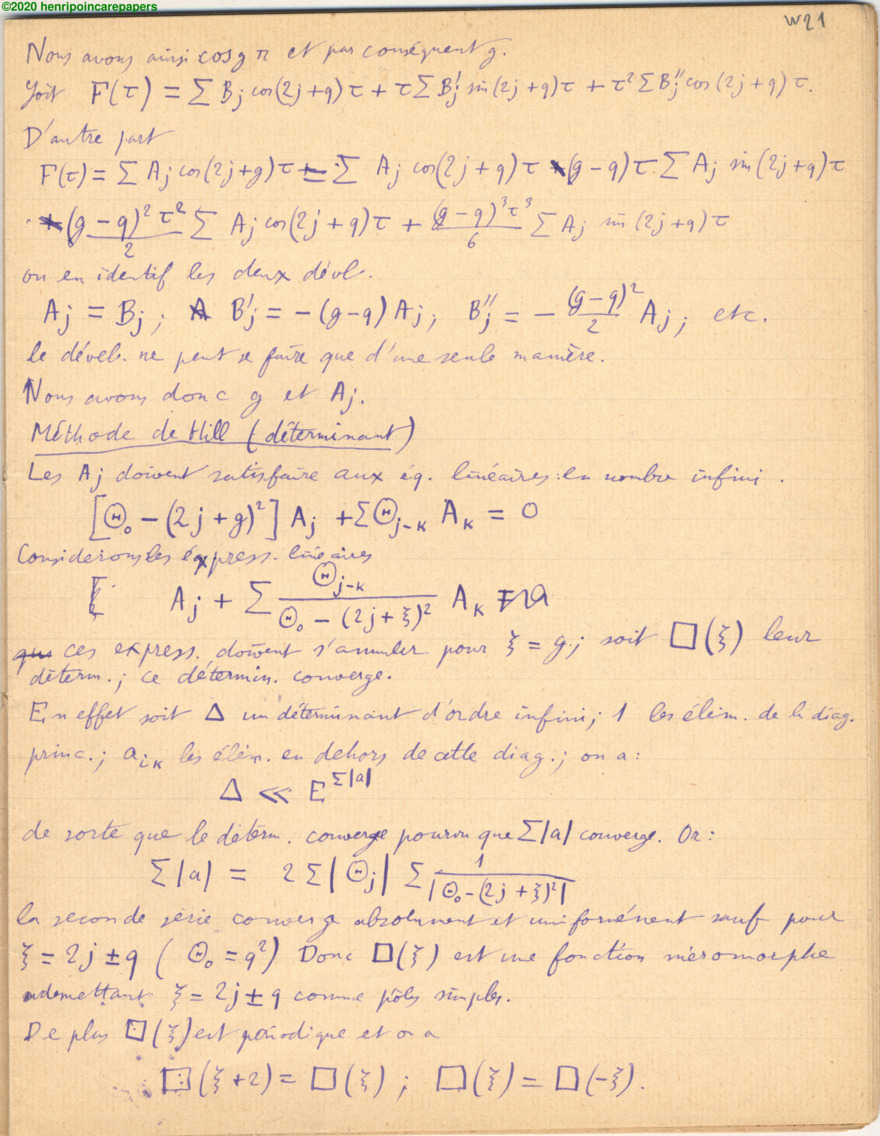 ©2020 henripoincarepapers
W21
Nous avons ainsi cos g π et par conséquent g.
Soit F(τ) = Σ Bj cos(2j+q)τ + τ Σ B'j sin(2j+q)τ + τ² Σ B''j cos(2j+q)τ.
D'autre part
F(τ) = Σ Aj cos(2j+g)τ = Σ Aj cos(2j+q)τ - (g-q)τ Σ Aj sin(2j+q)τ
- (g-q)²τ²/2 Σ Aj cos(2j+q)τ + (g-q)³τ³/6 Σ Aj sin(2j+q)τ
ou en identif les deux dével.
Aj = Bj; B'j = -(g-q)Aj; B''j = - (g-q)²/2 Aj; etc.
le dével. ne peut se faire que d'une seule manière.
Nous avons donc g et Aj.
Méthode de Hill (déterminant)
Les Aj doivent satisfaire aux éq. linéaires en nombre infini.
[Θ₀ - (2j+g)²] Aj + Σ Θj-κ Aκ = 0
Considerons les express. linéaires
Aj + Σ Θj-κ/(Θ₀ - (2j+ξ)²) Aκ
ces express. doivent s'annuler pour ξ = g; soit □(ξ) leur
determ.; ce détermin. converge.
En effet soit Δ un déterminant d'ordre infini; 1 les élém. de la diag.
princ.; aiκ les élém. en dehors de cette diag.; on a:
Δ << E^Σ|a|
de sorte que le déterm. converge pourvu que Σ|a| converge. Or:
Σ|a| = 2 Σ|Θj| Σ 1/|Θ₀-(2j+ξ)²|
la seconde série converge absolument et uniformément sauf pour
ξ = 2j ± q ( Θ₀ = q²) Donc □(ξ) est une fonction méromorphe
admettant ξ = 2j ± q comme pôles simples.
De plus □(ξ) est périodique et on a
□(ξ+2) = □(ξ); □(ξ) = □(-ξ).